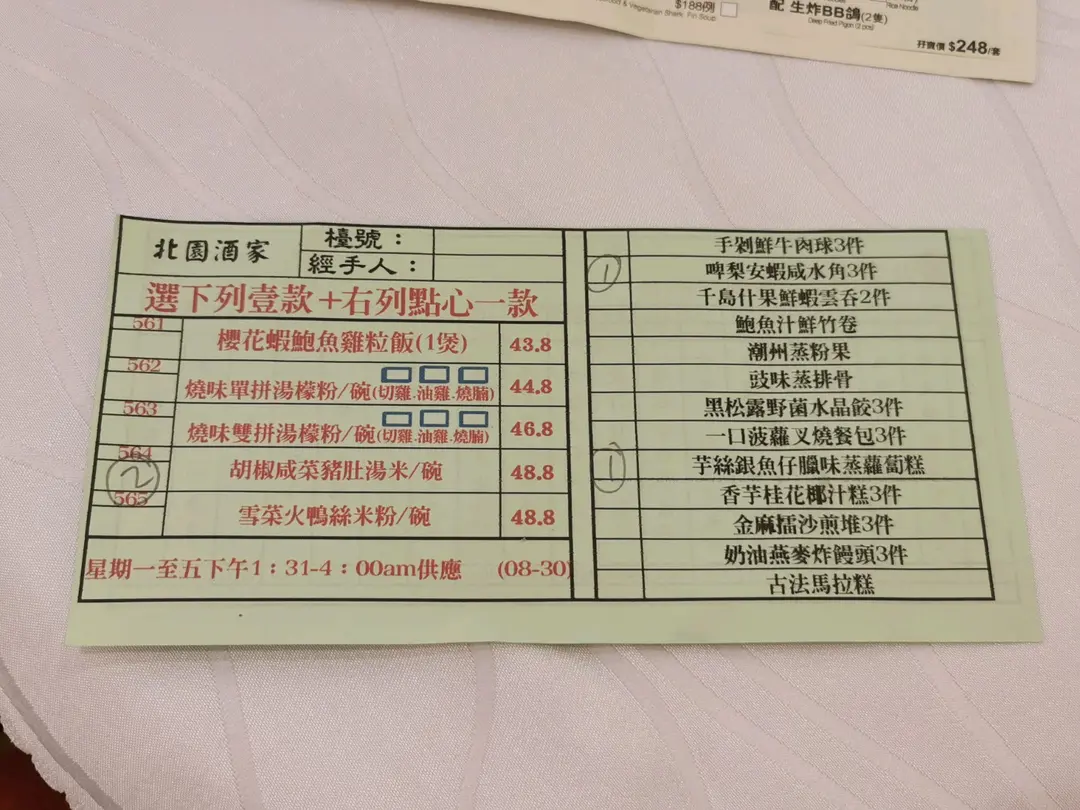 $188例
配 生炸BB鴿(2隻)
Rice Noodle
& Vegetarian Shark Fin Soup
Deep Fried Pigon (2 pcs)
孖寶價 $248/套
北園酒家
檯號：
經手人：
選下列壹款＋右列點心一款
561
櫻花蝦鮑魚雞粒飯(1煲) 43.8
562
燒味單拼湯檬粉/碗(切雞.油雞.燒腩) 44.8
563
燒味雙拼湯檬粉/碗(切雞.油雞.燒腩) 46.8
564
② 胡椒咸菜豬肚湯米/碗 48.8
565
雪菜火鴨絲米粉/碗 48.8
星期一至五下午1：31-4：00am供應 (08-30)
手剁鮮牛肉球3件
① 啤梨安蝦咸水角3件
千島什果鮮蝦雲吞2件
鮑魚汁鮮竹卷
潮州蒸粉果
豉味蒸排骨
黑松露野菌水晶餃3件
一口菠蘿叉燒餐包3件
① 芋絲銀魚仔臘味蒸蘿蔔糕
香芋桂花椰汁糕3件
金麻擂沙煎堆3件
奶油燕麥炸饅頭3件
古法馬拉糕